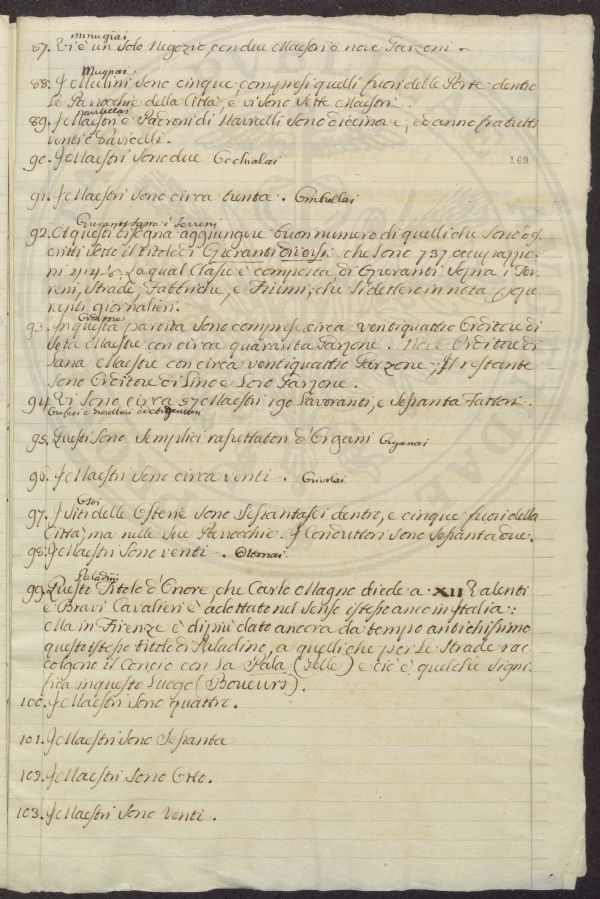 minugiai
87. Vi è un solo Negozio, con due Maestri e nove Garzoni.
Mugnai
88. I Mulini sono cinque compresi quelli fuori delle Porte dentro
le Parrocchie della Città, e vi sono sette Maestri.
Navicellai
89. I Maestri e Padroni di Navicelli sono dicinove, ed anno fra tutti
venti Navicelli.
90. I Maestri sono due Occhialai
169
91. I Maestri sono circa trenta. Ombrellai
Operanti sopra i Terreni
92. A questi bisogna aggiungere buon numero di quelli che sono os
critti sotto il titolo di Operanti diversi che sono 737
ni 2114. La qual Clase è composta di Operanti sopra i Ter
reni, Strade, Fabbriche, e Fiumi, che si dettero in nota
renti giornalieri.
Orditore
93. In questa partita sono comprese circa ventiquattro Orditore di
Seta Maestre con circa quaranta Garzone. Nove Orditore di
Lana Maestre con circa ventiquattro Garzone. Il restante
sono Orditore di Lino e Loro Garzone.
94. Vi sono circa 57 Maestri 190 Lavoranti, e Sessanta Fattori.
Orefici e Gioiellieri
95. Questi sono semplici rasettatori d'Organi Organai
96. I Maestri sono circa venti. Orivolai
Osti
97. I siti delle Osterie sono Sessantasei dentro, e cinque fuori della
Città, ma nelle sue Parrocchie. I Conduttori sono Sessantadue.
98. I Maestri sono venti. Ottonai
Paladini
99. Questo Titolo d'Onore che Carlo Magno diede a XII Valenti
e Bravi Cavalieri è adottato nel senso istesso anco in Italia:
Ma in Firenze è di più dato ancora da tempo antichissimo
questo istesso titolo di Paladino, a quelli che per le Strade rac
colgono il Concio con La Pala (Pelle) e ciò è quelche signi
fica in questo Luogo (Boueurs).
100. I Maestri sono quattro.
101. I Maestri sono Sessanta
102. I Maestri sono Otto.
103. I Maestri sono Venti.